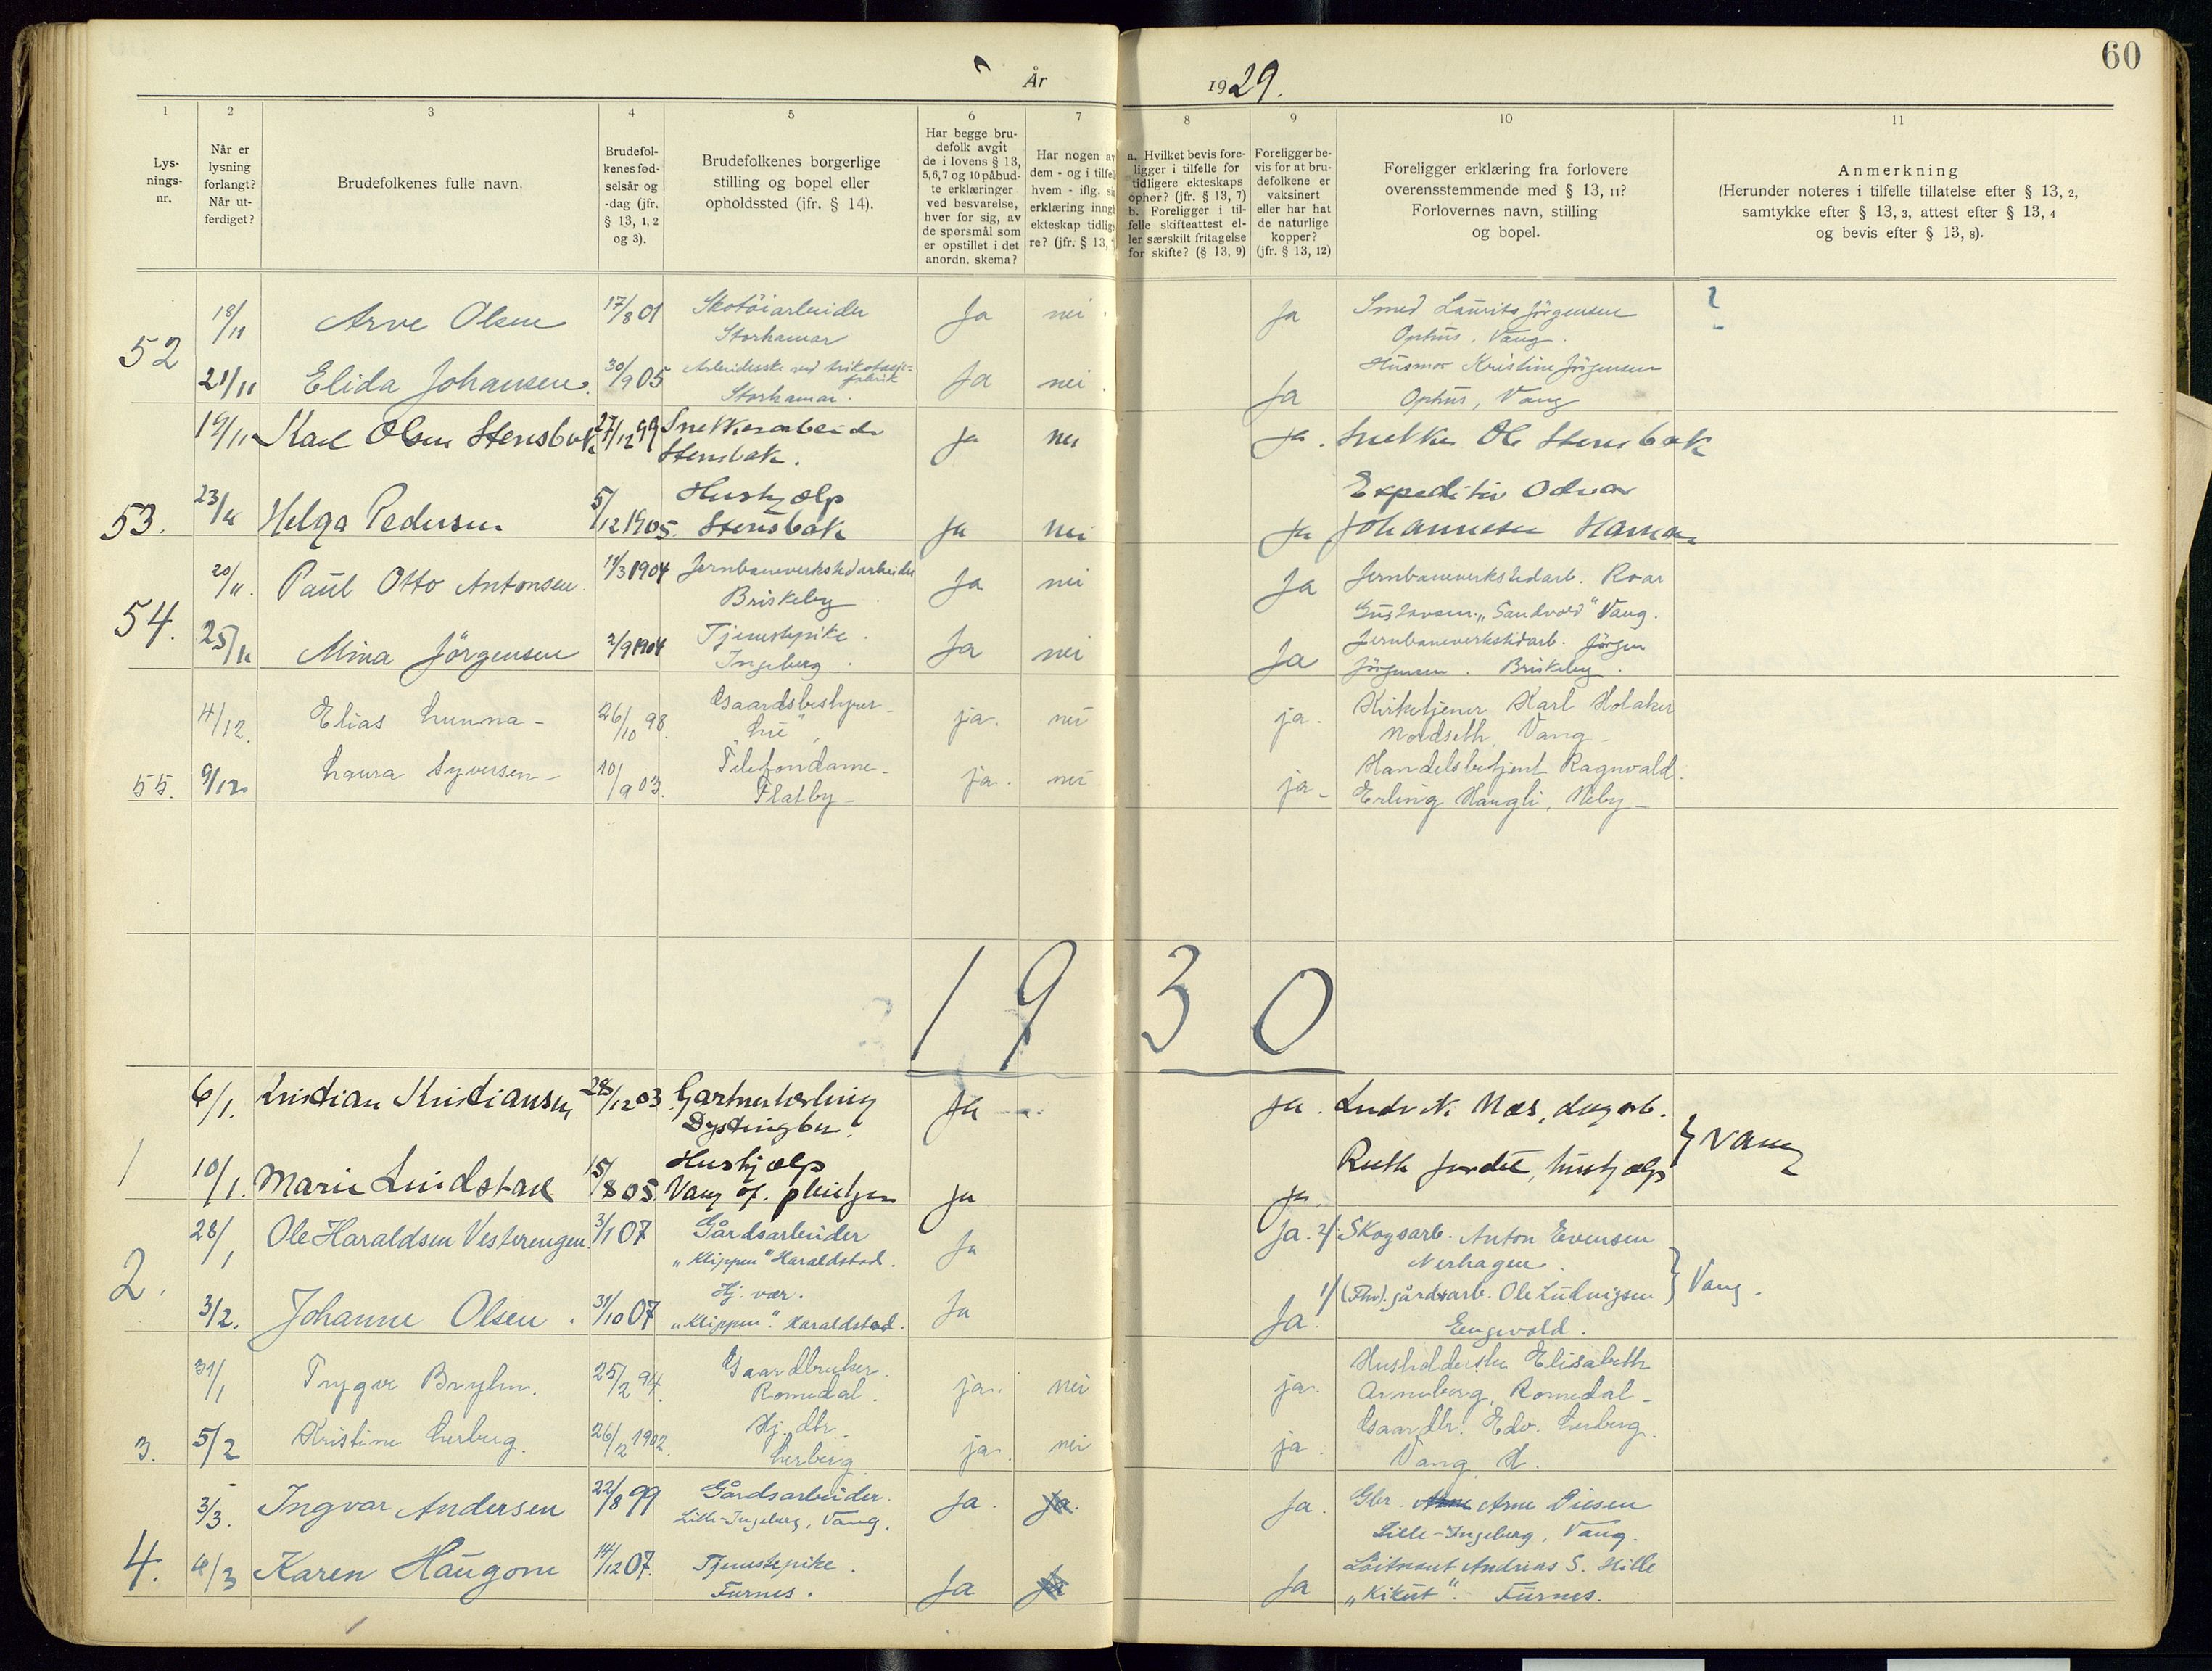 60
År 1929.
1 2 3 4 5 6 7 8 9 10 11
Lys-
nings-
nr.
Når er
lysning
forlangt?
Når ut-
ferdiget?
Brudefolkenes fulle navn.
Brudefol-
kenes fød-
selsår og
-dag (jfr.
§ 13, 1, 2
og 3).
Brudefolkenes borgerlige
stilling og bopel eller
opholdssted (jfr. § 14).
Har begge bru-
defolk avgit
de i lovens § 13,
5, 6, 7 og 10 påbud-
te erklæringer
ved besvarelse,
hver for sig, av
de spørsmål som
er opstillet i det
anordn. skema?
Har nogen av
dem - og i tilfel
hvem - iflg. si
erklæring inng
ekteskap tidlig
re? (jfr. § 13,
a. Hvilket bevis fore-
ligger i tilfelle for
tidligere ekteskaps
ophør? (jfr. § 13, 7)
b. Foreligger i til-
felle skifteattest el-
ler særskilt fritagelse
for skifte? (§ 13, 9)
Foreligger be-
vis for at bru-
defolkene er
vaksinert
eller har hat
de naturlige
kopper?
(jfr. § 13, 12)
Foreligger erklæring fra forlovere
overensstemmende med § 13, 11?
Forlovernes navn, stilling
og bopel.
Anmerkning
(Herunder noteres i tilfelle tillatelse efter § 13, 2,
samtykke efter § 13, 3, attest efter § 13, 4
og bevis efter § 13, 8).
52
18/11 Arve Olsen 17/8 01 Skotöiarbeider Ja nei Ja Smed Laurits Jörgensen
Storhamar Ophus, Vang.
21/11 Elida Johansen. 30/9 05 Arbeiderske ved trikotasje- Ja nei. Ja Husmor Kristine Jörgensen
fabrik
Storhamar. Ophus, Vang
19/11 Karl Olsen Stensbak 27/12 99 Snekkerarbeider ja nei ja. Snekker Ole Stensbak
Stensbak.
53. 23/11 Helga Pedersen 5/12 1905. Hushjælp Ja nei Ja Expeditör Odvar
Stensbak Johannesen Hamar
54.
20/11. Paul Otto Antonsen. 11/3 1904 Jernbaneverkstedarbeider Ja nei Ja Jernbaneverkstedarb. Roar
Briskeby Gustavsen. "Sandvold" Vang.
25/11 Mina Jörgensen 2/9 1904 Tjenestepike. Ja nei Ja Jernbaneverkstedarb. Jörgen
Ingeberg. Jörgensen. Briskeby.
4/12. Elias Lunna - 26/10 98. Gaardsbestyrer - ja. nei ja. Kirketjener Karl Holaker
"Lie", Nordseth, Vang -
55. 9/12 Laura Syversen - 10/9 03. Telefondame - ja. nei ja - Handelsbetjent Ragnvald
Flatby - Erling Haugli, Veby -
1930
1
6/1. Kristian Kristiansen 28/12 03 Gartnerlærling Ja ja. Ludvik Næs, dagarb.
Dystingbo.
} Vang
10/1. Marie Lindstad 15/8 05. Hushjælp ja ja. Ruth Jordet, hushjælp
Vang og. pleiehjem
2.
28/1 Ole Haraldsen Vesterengen. 3/1 07 Gårdsarbeider Ja Ja. 2/ Skogsarb. Anton Evensen
"Klippen" Haraldstad. Nerhagen.
} Vang.
3/2. Johanne Olsen. 31/10 07 Hj. vær. Ja Ja. 1/ (Fhv). gårdsarb. Ole Ludvigsen
"Klippen". Haraldstad. Engvold.
31/1 Trygve Bryhn. 25/2 94. Gaardbruker. ja. nei ja. Husholderske Elisabeth
Romedal. Arneberg, Romedal -
3. 5/2 Kristine Lerberg. 26/2 1902. Hj. dtr. ja. nei ja. Gaardbr. Edv. Lerberg.
Lerberg Vang H.
3/3. Ingvar Andersen 22/8 99 Gårdsarbeider. Ja. Ja. Ja. Gbr. Arne Diesen
Lille-Ingeberg, Vang. Lille-Ingeberg, Vang.
4. 6/3 Karen Haugom 14/12 07. Tjenestepike. Ja Ja Ja Löitnant Andreas S. Hille
Furnes. "Kikut". Furnes.